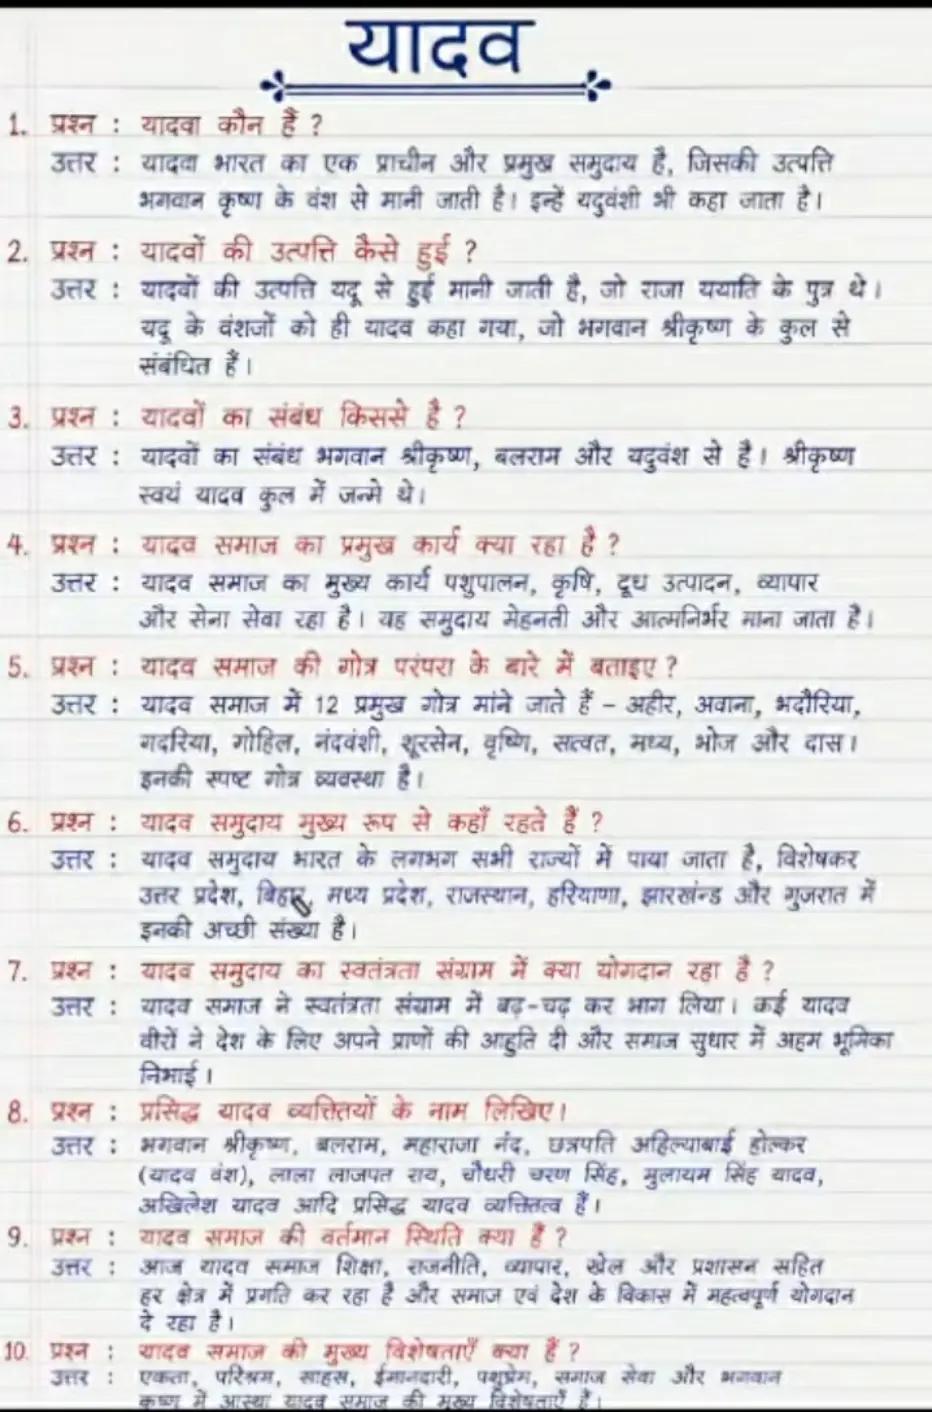 यादव
1. प्रश्न : यादवा कौन हैं ?
उत्तर : यादवा भारत का एक प्राचीन और प्रमुख समुदाय है, जिसकी उत्पत्ति
भगवान कृष्ण के वंश से मानी जाती है। इन्हें यदुवंशी भी कहा जाता है।
2. प्रश्न : यादवों की उत्पत्ति कैसे हुई ?
उत्तर : यादवों की उत्पत्ति यदू से हुई मानी जाती है, जो राजा ययाति के पुत्र थे।
यदू के वंशजों को ही यादव कहा गया, जो भगवान श्रीकृष्ण के कुल से
संबंधित हैं।
3. प्रश्न : यादवों का संबंध किससे है ?
उत्तर : यादवों का संबंध भगवान श्रीकृष्ण, बलराम और यदुवंश से है। श्रीकृष्ण
स्वयं यादव कुल में जन्मे थे।
4. प्रश्न : यादव समाज का प्रमुख कार्य क्या रहा है ?
उत्तर : यादव समाज का मुख्य कार्य पशुपालन, कृषि, दूध उत्पादन, व्यापार
और सेना सेवा रहा है। यह समुदाय मेहनती और आत्मनिर्भर माना जाता है।
5. प्रश्न : यादव समाज की गोत्र परंपरा के बारे में बताइए ?
उत्तर : यादव समाज में 12 प्रमुख गोत्र मांने जाते हैं - अहीर, अवाना, भदौरिया,
गदरिया, गोहिल, नंदवंशी, शूरसेन, वृष्णि, सत्वत, मध्य, भोज और दास।
इनकी स्पष्ट गोत्र व्यवस्था है।
6. प्रश्न : यादव समुदाय मुख्य रूप से कहाँ रहते हैं ?
उत्तर : यादव समुदाय भारत के लगभग सभी राज्यों में पाया जाता है, विशेषकर
उत्तर प्रदेश, बिहार, मध्य प्रदेश, राजस्थान, हरियाणा, झारखंन्ड और गुजरात में
इनकी अच्छी संख्या है।
7. प्रश्न : यादव समुदाय का स्वतंत्रता संग्राम में क्या योगदान रहा है ?
उत्तर : यादव समाज ने स्वतंत्रता संग्राम में बढ़-चढ़ कर भाग लिया। कई यादव
वीरों ने देश के लिए अपने प्राणों की आहुति दी और समाज सुधार में अहम भूमिका
निभाई।
8. प्रश्न : प्रसिद्ध यादव व्यत्तितयों के नाम लिखिए।
उत्तर : भगवान श्रीकृष्ण, बलराम, महाराजा नंद, छत्रपति अहिल्याबाई होल्कर
(यादव वंश), लाला लाजपत राय, चौधरी चरण सिंह, मुलायम सिंह यादव,
अखिलेश यादव आदि प्रसिद्ध यादव व्यत्तितत्व हैं।
9. प्रश्न : यादव समाज की वर्तमान स्थिति क्या है ?
उत्तर : आज यादव समाज शिक्षा, राजनीति, व्यापार, खेल और प्रशासन सहित
हर क्षेत्र में प्रगति कर रहा है और समाज एवं देश के विकास में महत्वपूर्ण योगदान
दे रहा है।
10. प्रश्न : यादव समाज की मुख्य विशेषताएँ क्या हैं ?
उत्तर : एकता, परिश्रम, साहस, ईमानदारी, पशुप्रेम, समाज सेवा और भगवान
कृष्ण में आस्था यादव समाज की मुख्य विशेषताएँ हैं।